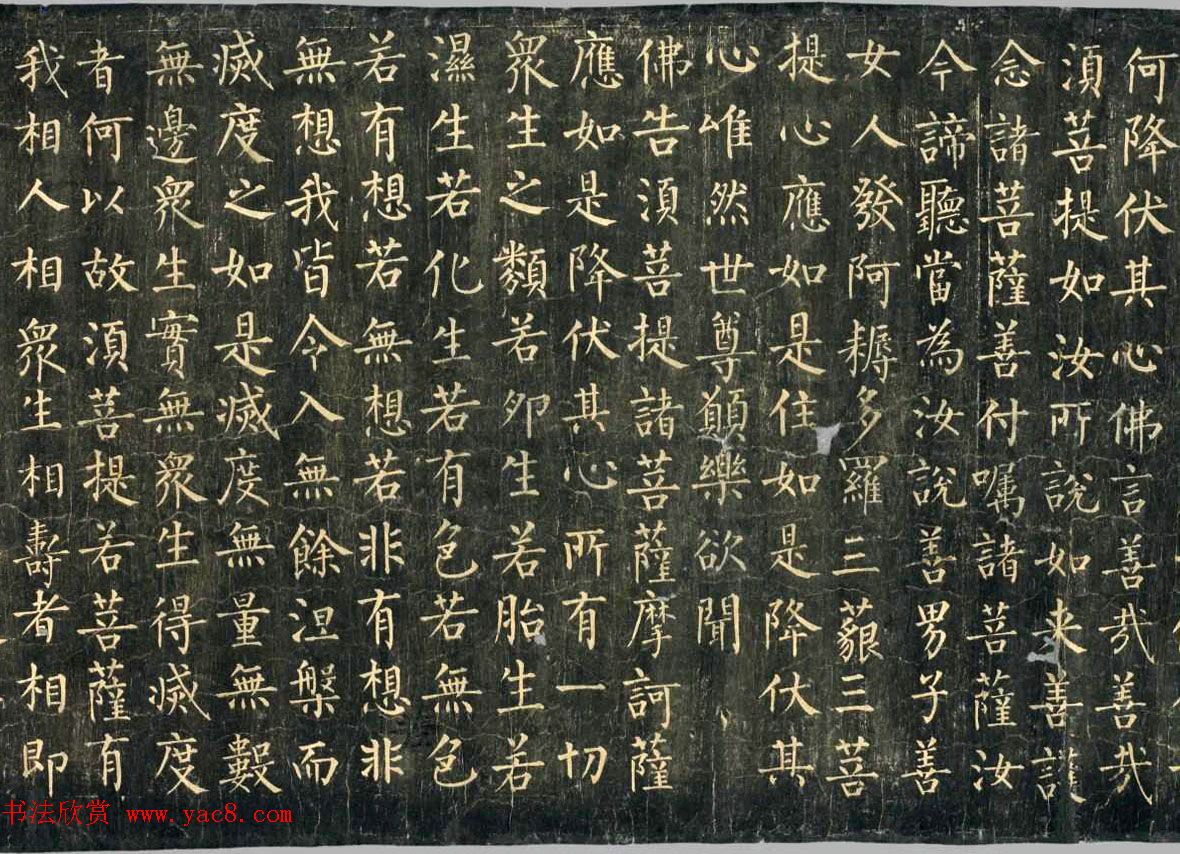 何降伏其心佛言善哉善哉
須菩提如汝所說如来善護
念諸菩薩善付嘱諸菩薩汝
今諦聽當為汝說善男子善
女人發阿耨多羅三藐三菩
提心應如是住如是降伏其
心唯然世尊願樂欲聞
佛告須菩提諸菩薩摩訶薩
應如是降伏其心所有一切
衆生之類若卵生若胎生若
濕生若化生若有色若無色
若有想若無想若非有想非
無想我皆令入無餘涅槃而
滅度之如是滅度無量無數
無邊衆生實無衆生得滅度
者何以故須菩提若菩薩有
我相人相衆生相壽者相即
书法欣赏 www.yac8.com